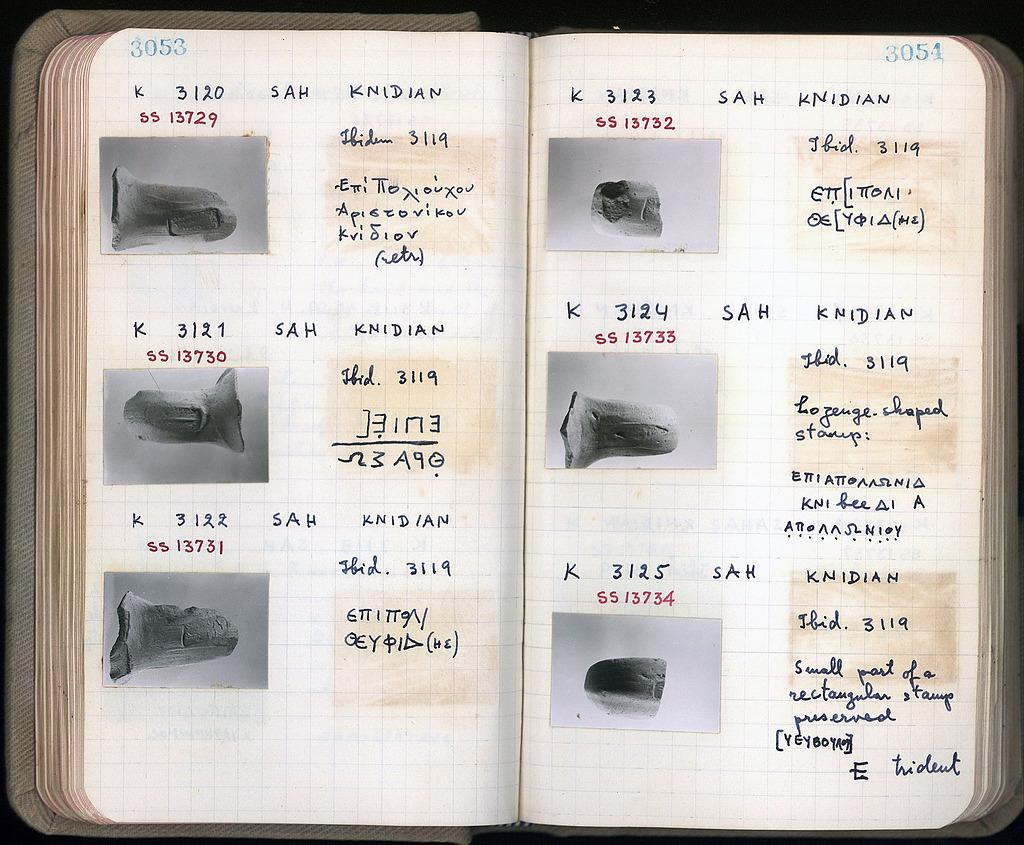 3053
K 3120 SAH KNIDIAN
SS 13729
Ibidem 3119
Ἐπὶ Πολιούχου
Ἀριστονίκου
Κνίδιον
(retr)
K 3121 SAH KNIDIAN
SS 13730
Ibid. 3119
ΕΠΙΕ[
ΘΡΑΣΩ
K 3122 SAH KNIDIAN
SS 13731
Ibid. 3119
ΕΠΙΠΟΛ/
ΘΕΥΦΙΔ(ΗΣ)
3054
K 3123 SAH KNIDIAN
SS 13732
Ibid. 3119
ΕΠ[ΙΠΟΛΙ
ΘΕ[ΥΦΙΔ(ΗΣ)
K 3124 SAH KNIDIAN
SS 13733
Ibid. 3119
Lozenge-shaped
stamp:
ΕΠΙΑΠΟΛΛΩΝΙΔ
ΚΝΙ ΔΙ Α
ΑΠΟΛΛΩΝΙΟΥ
K 3125 SAH KNIDIAN
SS 13734
Ibid. 3119
Small part of a
rectangular stamp
preserved
[ΥΕΥΒΟΥΛΟ]
E trident